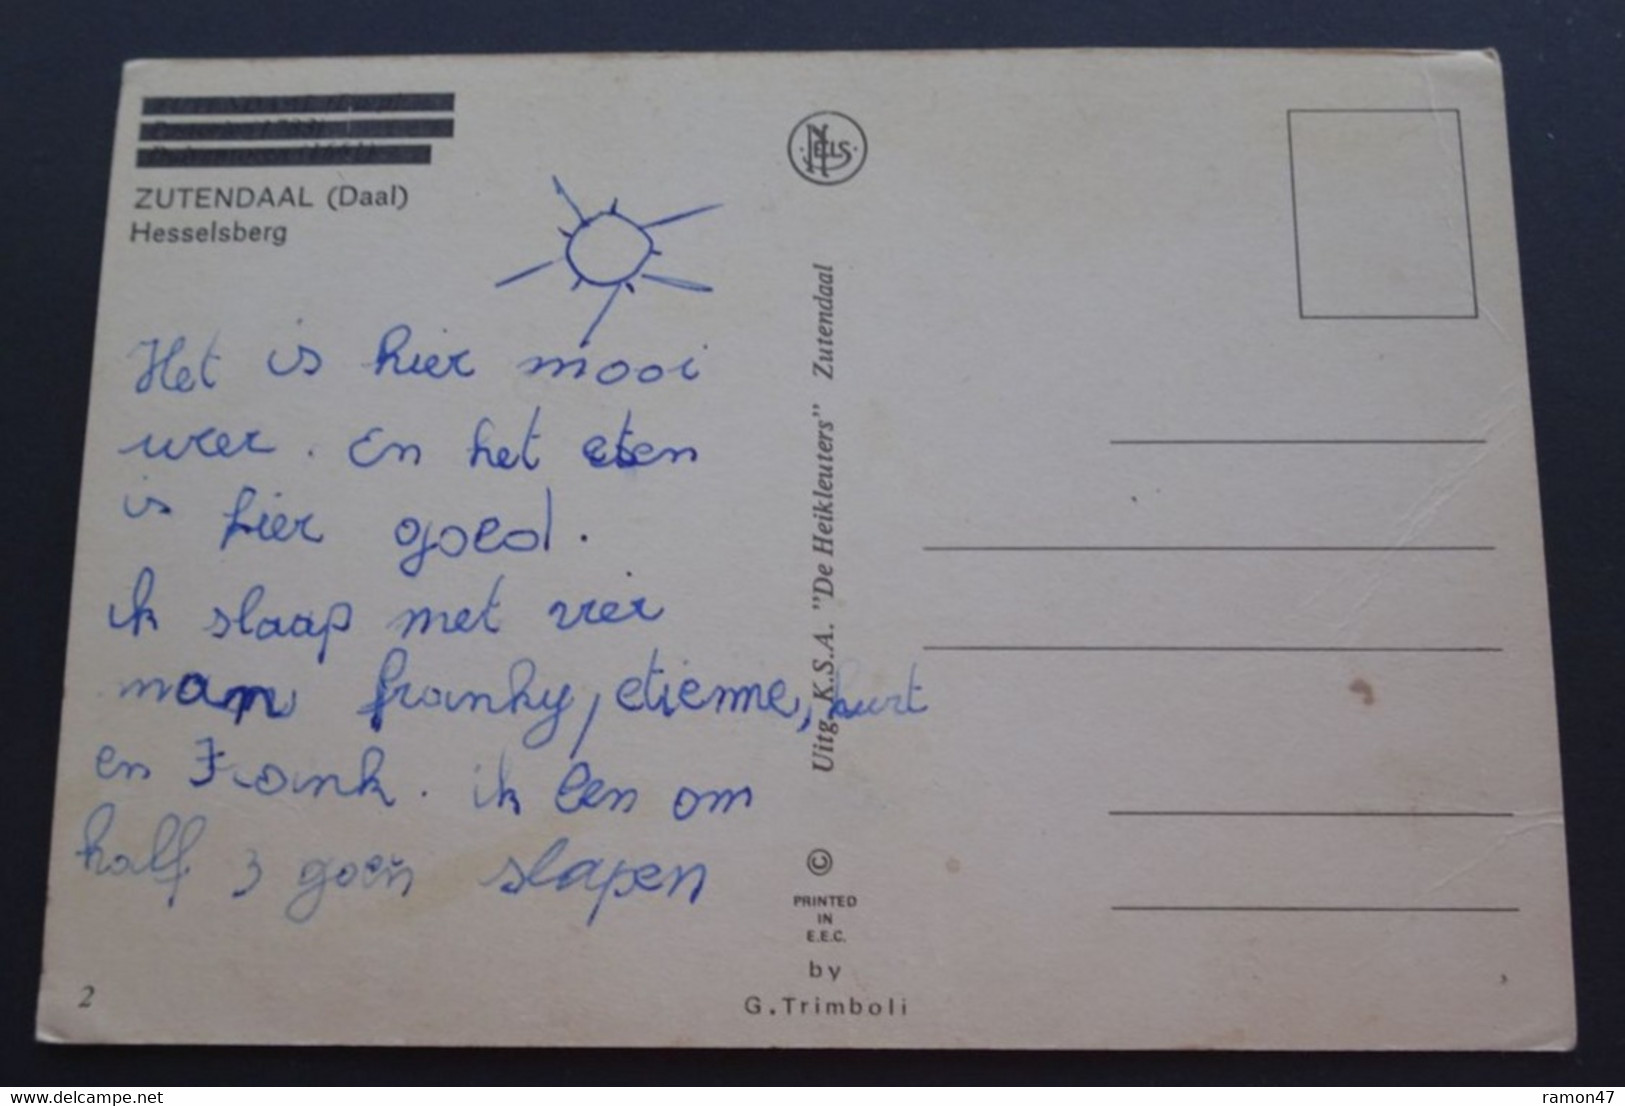 ZUTENDAAL (Daal)
Hesselsberg
Het is hier mooi
weer. En het eten
is hier goed.
ik slaap met vier
man franky, etienne, kurt
en Frank. ik ben om
half 3 goen slapen
2
NELS
Uitg. K.S.A. "De Heikleuters" Zutendaal
©
PRINTED
IN
E.E.C.
by
G.Trimboli
delcampe.net
ramon47